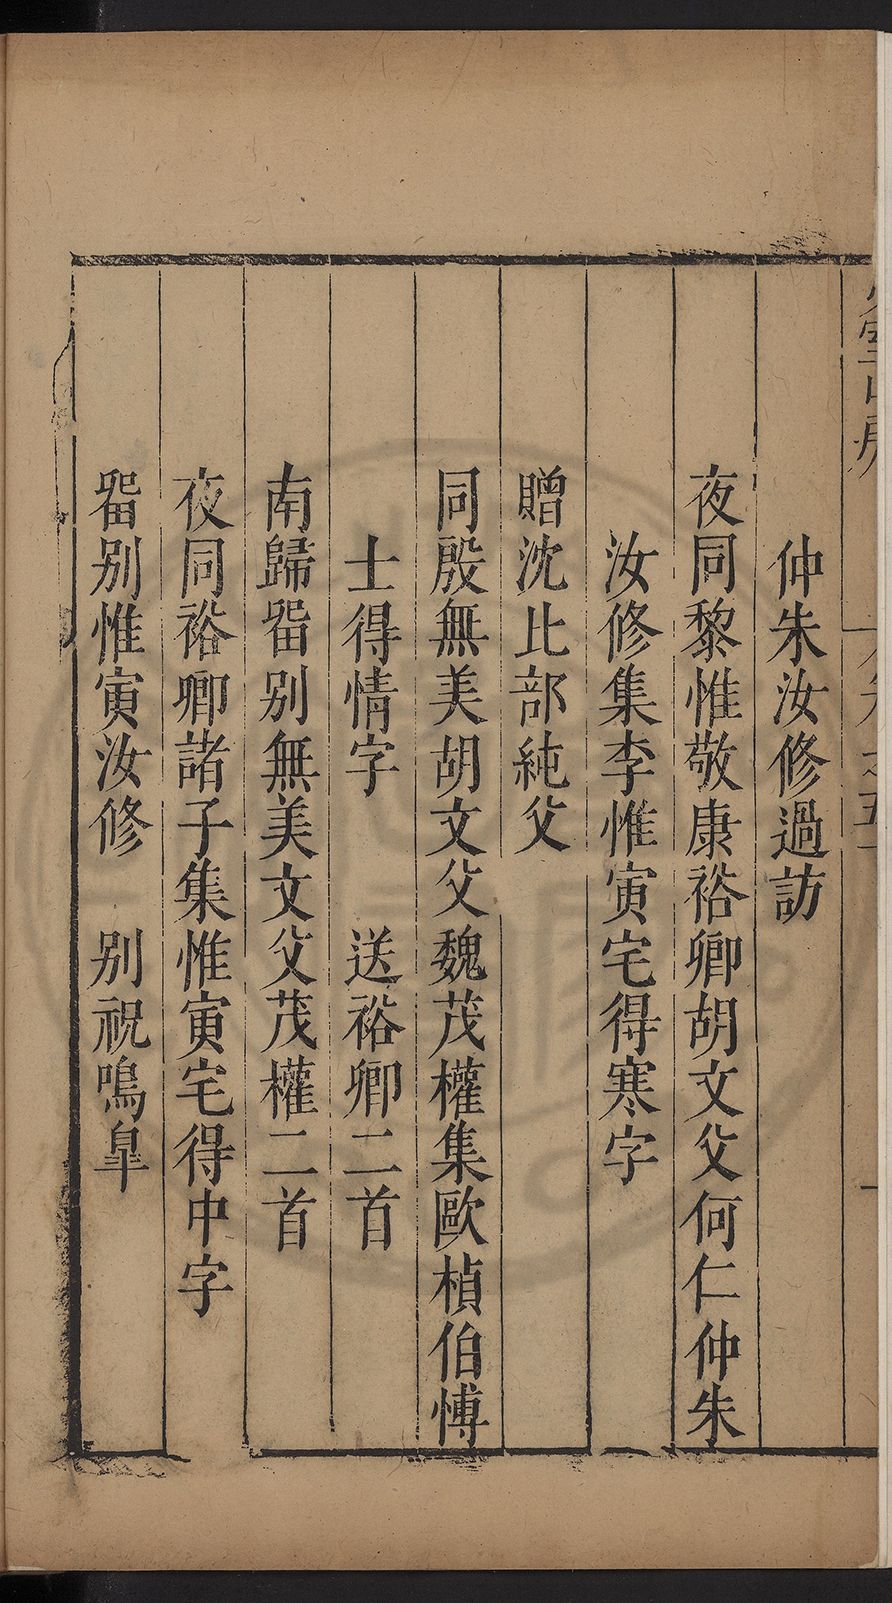 仲朱汝修過訪
夜同黎惟敬康裕卿胡文父何仁仲朱
汝修集李惟寅宅得寒字
贈沈比部純父
同殷無美胡文父魏茂權集歐楨伯博
士得情字　送裕卿二首
南歸畱别無美文父茂權二首
夜同裕卿諸子集惟寅宅得中字
畱别惟寅汝修　别祝鳴臯